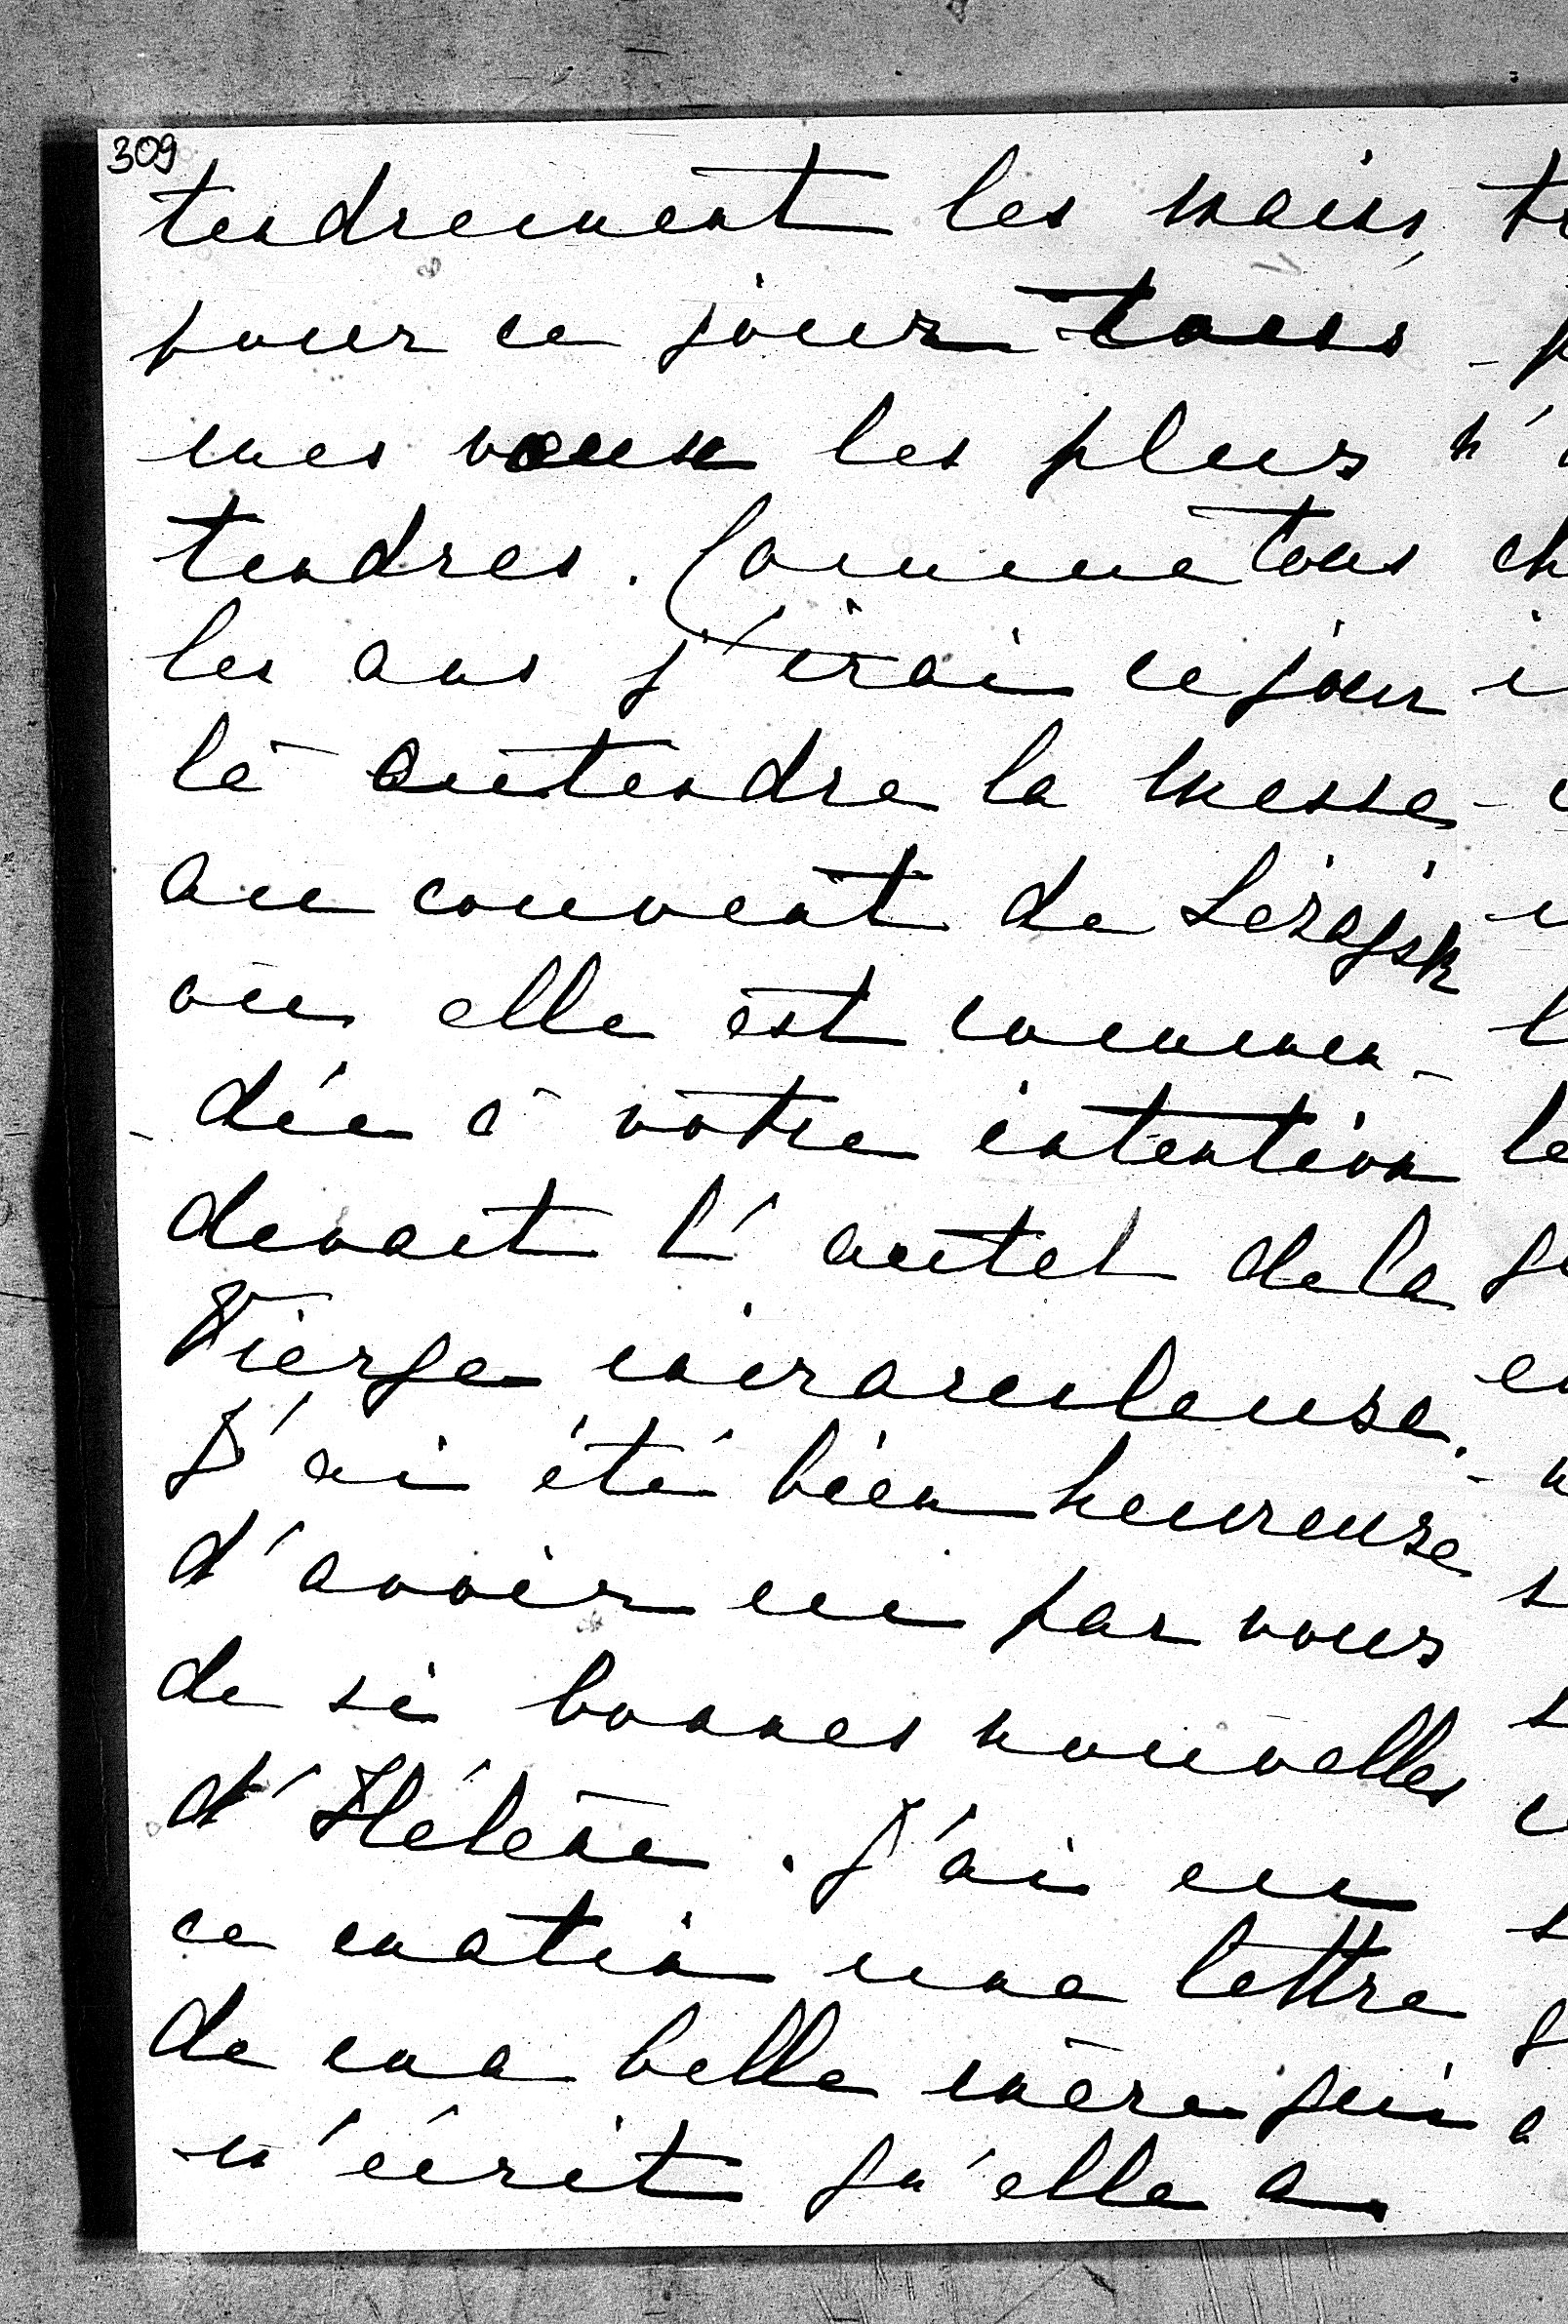 309
tendrement les mains,
pour ce jour tous
mes vœux les plus
tendres. Comme tous
les ans j'irai ce jour
là entendre la messe
au couvent de Leżajsk
où elle est comman-
-dée à votre intention
devant l'autel de la
Vierge miraculeuse.
J'ai été bien heureuse
d'avoir eu par vous
de si bonnes nouvelles
d'Hélène. J'ai eu
ce matin une lettre
de ma belle mère qui
m'écrit qu'elle a